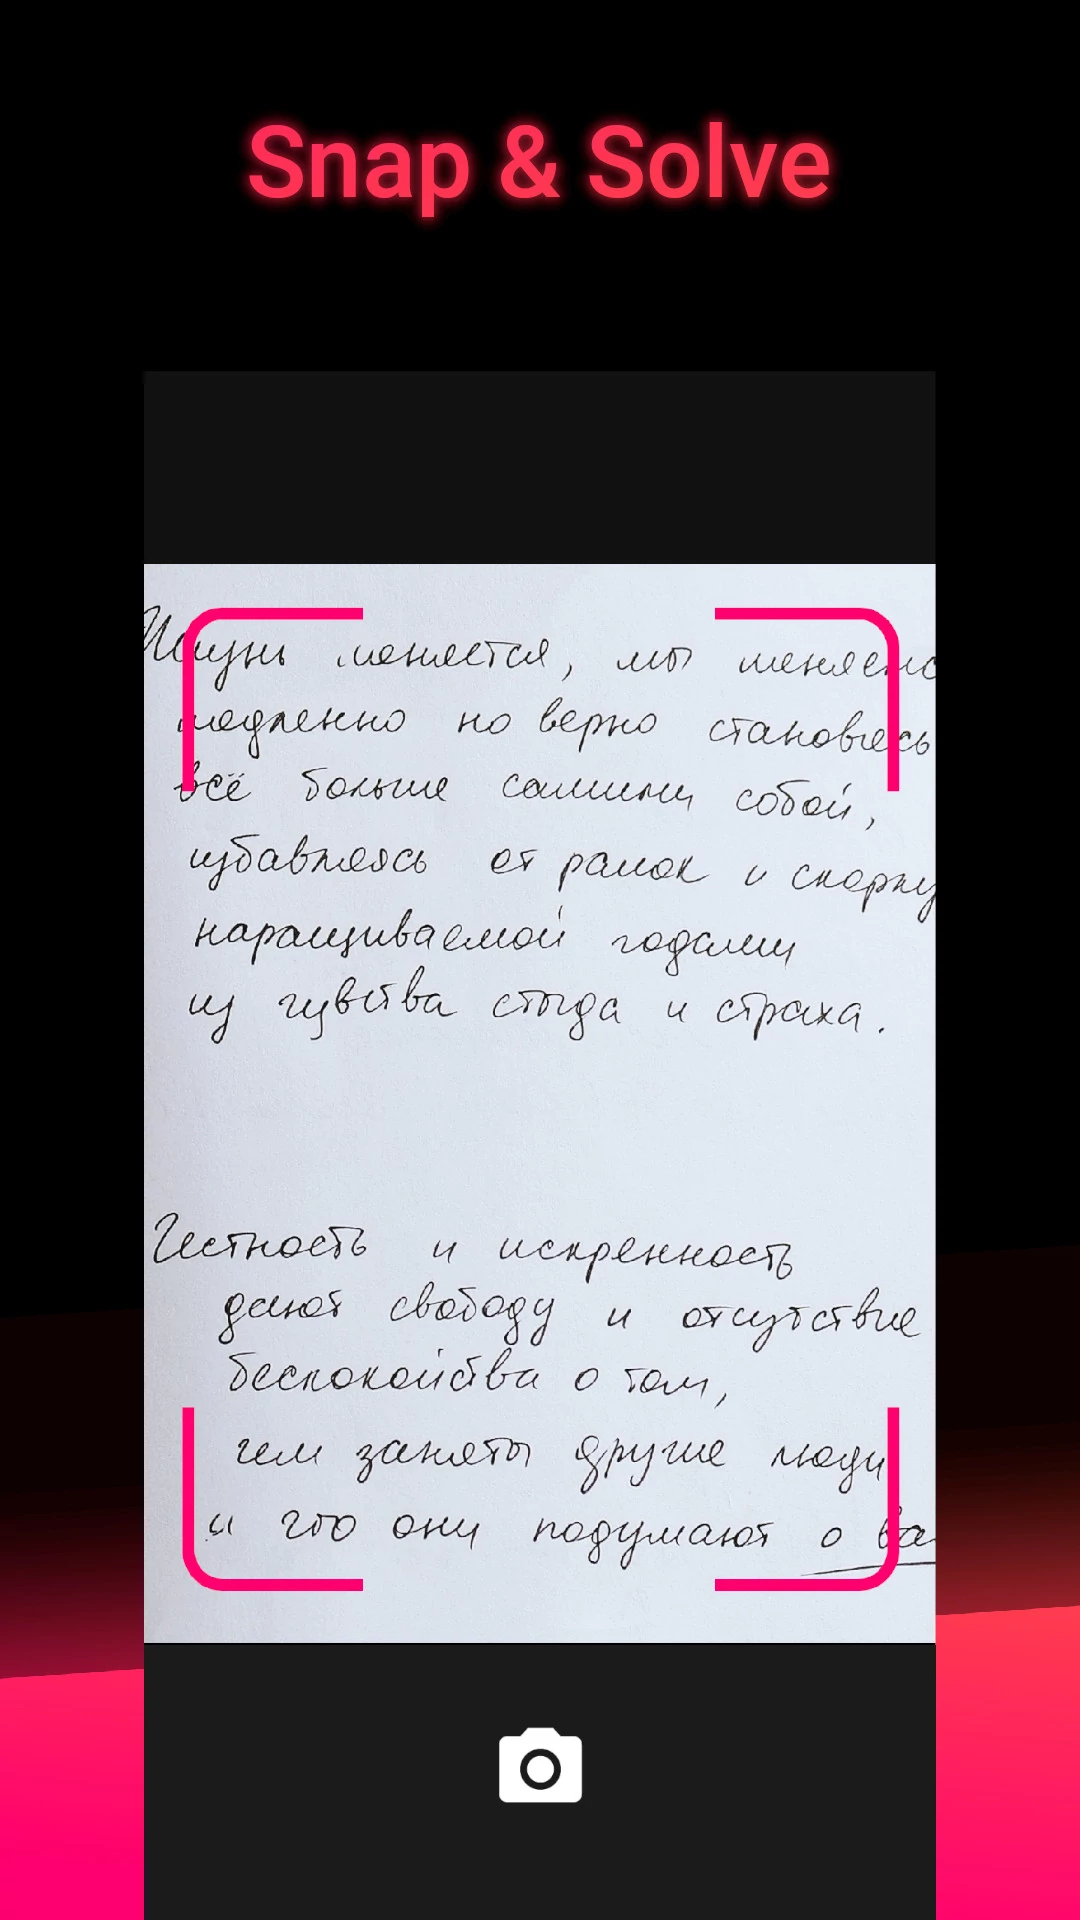 Snap & Solve
Жизнь меняется, мы меняемс
медленно но верно становясь
всё больше самими собой,
избавляясь от рамок и скорлу
наращиваемой годами
из чувства стыда и страха.
Честность и искренность
дают свободу и отсутствие
беспокойства о том,
чем заняты другие люди
и что они подумают о ва